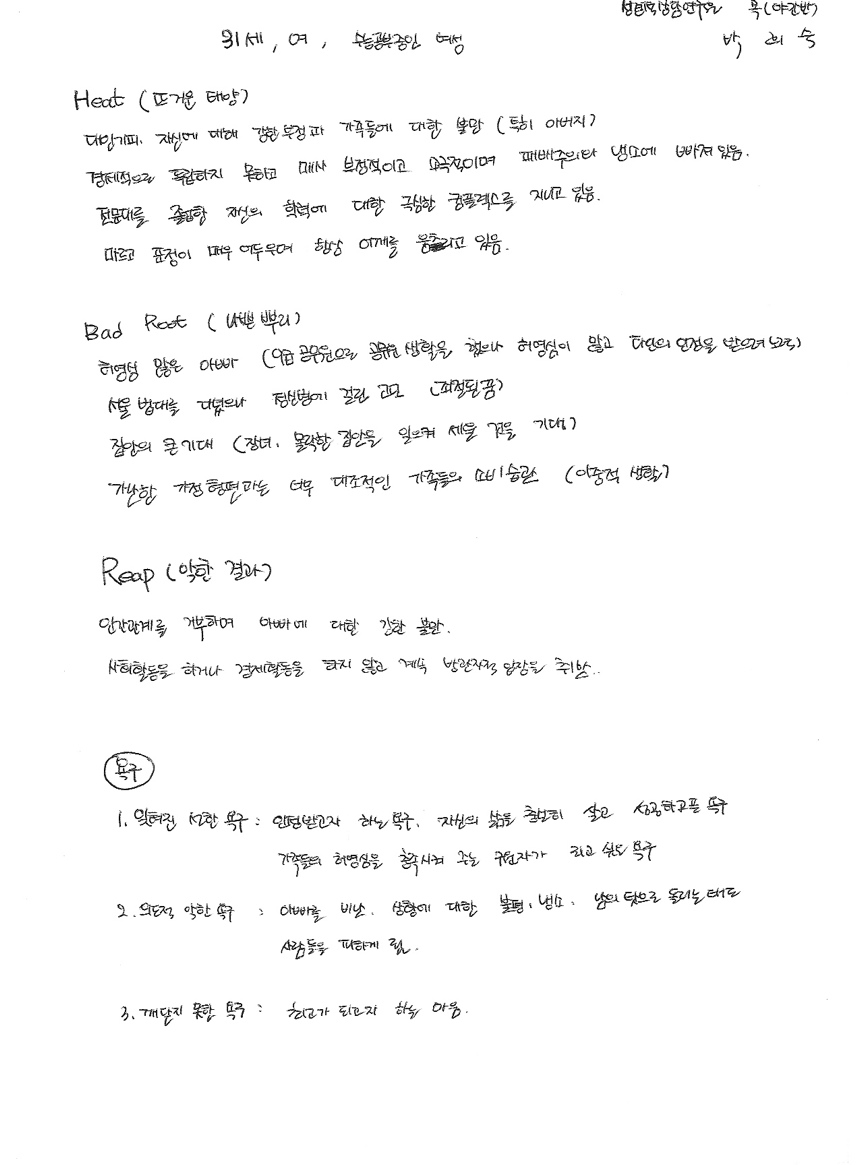 성경적상담연구원 목(야간반)
31세, 여, 수능공부중인 여성
박 희 숙
Heat (뜨거운 태양)
대인기피. 자신에 대해 강한 부정과 가족들에 대한 불만 (특히 아버지)
경제적으로 독립하지 못하고 매사 부정적이고 소극적이며 패배주의와 냉소에 빠져 있음.
전문대를 졸업한 자신의 학력에 대한 극심한 콤플렉스를 지니고 있음.
마르고 표정이 매우 어두우며 항상 어깨를 웅크리고 있음.
Bad Root (나쁜 뿌리)
허영심 많은 아빠 (9급 공무원으로 공무원 생활을 했으나 허영심이 많고 타인의 인정을 받으려 노력)
서울 법대를 다녔으나 정신병에 걸린 고모 (좌절된 꿈)
집안의 큰 기대 (장녀, 몰락한 집안을 일으켜 세울 것을 기대)
가난한 가정형편과는 너무 대조적인 가족들의 소비습관 (이중적 생활)
Reap (악한 결과)
인간관계를 거부하며 아빠에 대한 강한 불만.
사회활동을 하거나 경제활동을 하지 않고 계속 방관자적 입장을 취함..
욕구
1. 잊혀진 선한 욕구 : 인정받고자 하는 욕구. 자신의 삶을 충분히 살고 성공하고픈 욕구
가족들의 허영심을 충족시켜 주는 구원자가 되고 싶은 욕구
2. 의도적 악한 욕구 : 아빠를 비난. 상황에 대한 불평, 냉소. 남의 탓으로 돌리는 태도
사람들을 피하게 됨.
3. 깨닫지 못한 욕구 : 최고가 되고자 하는 마음.